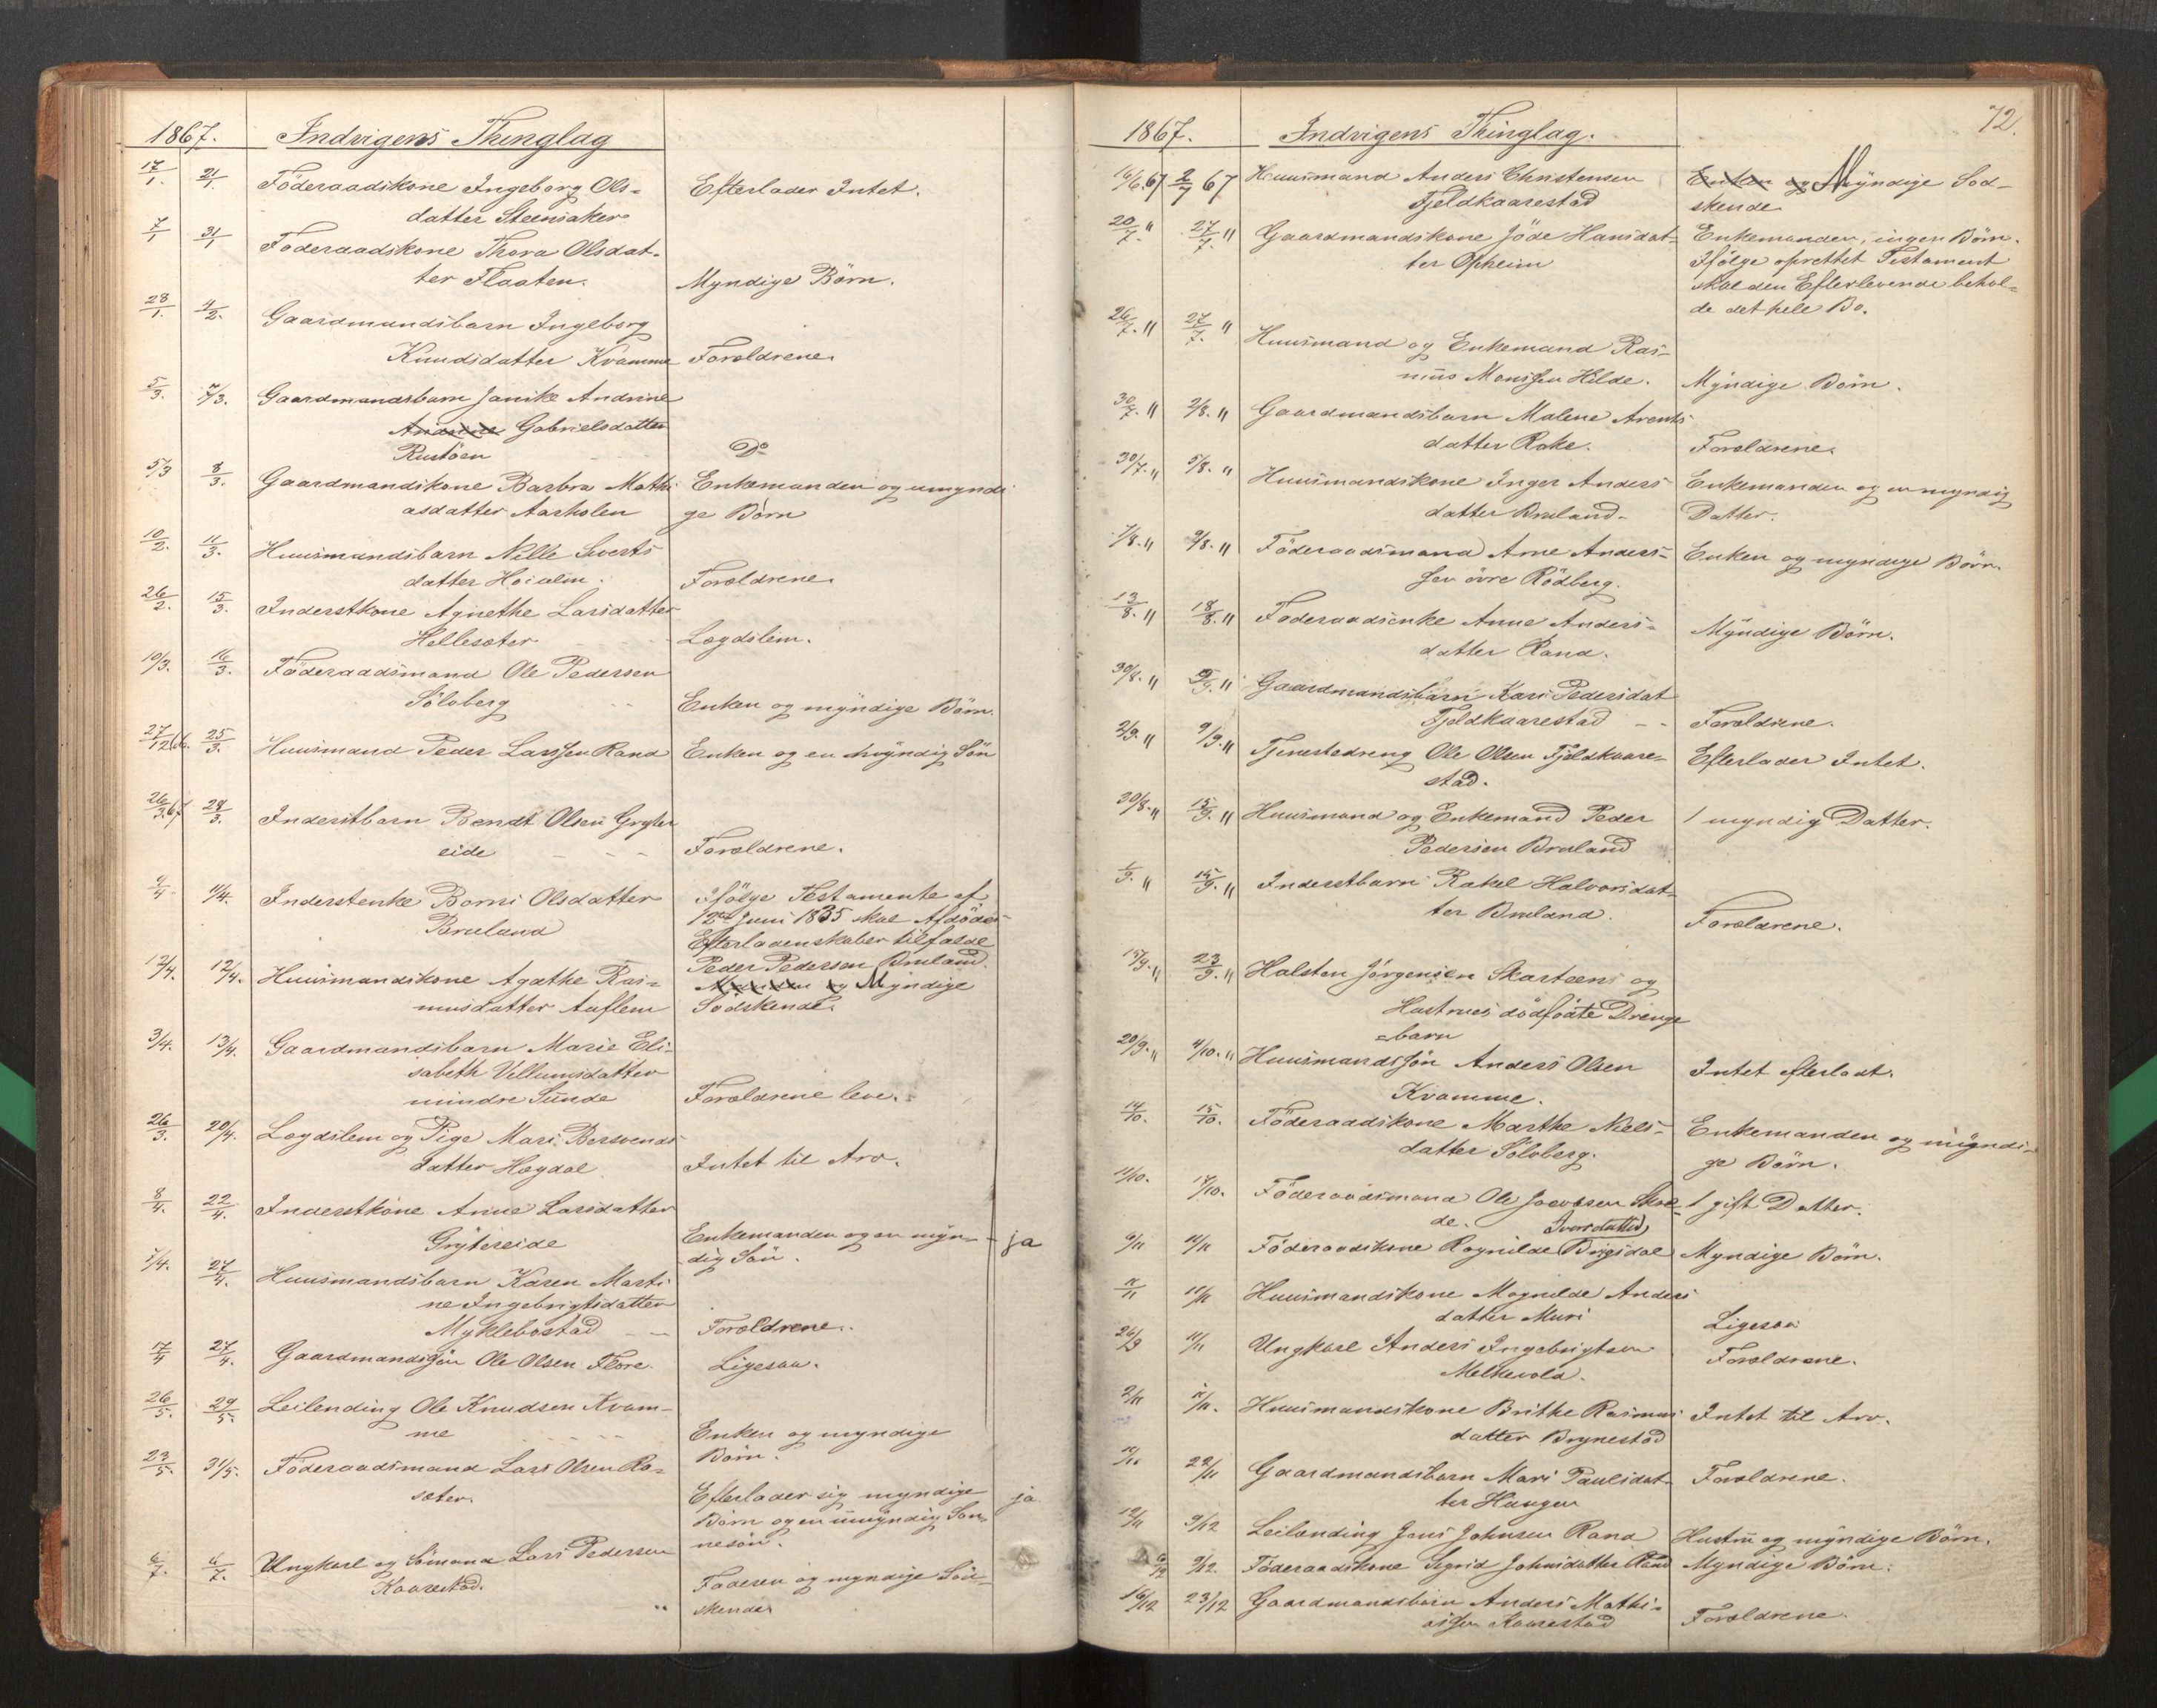 1867. Indvigens Thinglag
17/1. 21/1. Föderaadskone Ingeborg Ols- Efterlader Intet.
datter Steensaker
7/1 31/1 Föderaadskone Thora Olsdat-
ter Flaaten. Myndige Börn.
28/1. 4/2. Gaardmandsbarn Ingeborg
Knudsdatter Kvamme Forældrene.
5/3. 7/3. Gaardmandsbarn Janike Andrine
Andrine Gabrielsdatter
Rustöen Do
5/3 8/3. Gaardmandskone Barbra Mathi Enkemanden og umyndi
asdatter Aarholen ge Börn
10/2. 11/3. Huusmandsbarn Nille Siverts
datter Forældrene.
26/2. 15/3. Inderstkone Agnethe Larsdatter
Hellesæter Lægdslem.
10/3. 16/3. Föderaadsmand Ole Pedersen
Söloberg Enken og myndige Börn.
27/12 66. 25/3. Huusmand Peder Larssen Rand Enken og en myndig Sön
26/3. 67 28/3. Inderstbarn Bendt Olsen Gryter
eide Forældrene.
9/4 11/4. Inderstenke Borni Olsdatter Ifölge Testamente af
Bruland 12te Juni 1835 skal Afdödes
Efterladenskaber tilfalde
Peder Pedersen Bruland.
12/4. 12/4. Huusmandskone Agathe Ras- Manden og Myndige
musdatter Auflem Södskende.
3/4. 13/4. Gaardmandsbarn Marie Eli-
sabeth Villumsdatter
mindre Sunde Forældrene leve.
26/3. 20/4. Lægdslem og Pige Mari Bersvends
datter Hægdal Intet til Arv.
8/4. 22/4. Inderstkone Anne Larsdatter
Grytereide Enkemanden og en myn- ja
dig Sön.
1/4. 27/4. Huusmandsbarn Karen Marti
ne Ingebrigtsdatter
Myklebostad Forældrene.
17/4 27/4. Gaardmandssön Ole Olsen Flore. Ligesaa.
26/5. 29/5. Leilending Ole Knudsen Kvam-
me Enken og myndige
Börn.
23/5. 31/5. Föderaadsmand Lars Olsen Ra-
sæter. Efterlader sig myndige ja
Börn og en umyndig Son-
nesön.
6/7. 6/7. Ungkarl og Sömand Lars Pedersen
Kaarestad. Faderen og myndige Söd-
skende
72.
1867. Indvigens Thinglag.
16/6. 67 2/7 67 Huusmand Anders Christensen Enken og Myndige Söd-
Fjeldkaarestad skende
20/7. " 27/7. " Gaardmandskone Jöde Hansdat- Enkemanden, ingen Börn.
ter Opheim Ifölge oprettet Testament
skal den Efterlevende behol-
de det hele Bo.
26/7. " 27/7. " Huusmand og Enkemand Ras-
mus Monssen Hilde. Myndige Börn.
30/7. " 2/8. " Gaardmandsbarn Malene Arents
datter Rake. Forældrene.
30/7. " 5/8. " Huusmandskone Inger Anders Enkemanden og en myndig
datter Bruland. Datter.
7/8. " 9/8. " Föderaadsmand Arne Anders- Enken og myndige Börn.
sen övre Rödberg.
13/8. " 18/8. " Föderaadsenke Anne Anders- Myndige Börn.
datter Rand.
30/8. " Gaardmandsbarn Kari Pedersdat
Fjeldkaarestad Forældrene.
2/9. " 9/9. " Tjenestedreng Ole Olsen Fjeldkaare- Efterlader Intet.
stad.
30/8. " 15/9. " Huusmand og Enkemand Peder 1 myndig Datter.
Pedersen Bruland
1/9. " 15/9. " Inderstbarn Rakel Halvorsdat-
ter Bruland. Forældrene.
15/9. " 23/9. " Halsten Jörgensen Skarteens og
Hustrues dödfödte Drenge
barn
20/9. " 4/10. " Huusmandssön Anders Olsen Intet efterladt.
Kvamme.
14/10. 15/10. Föderaadskone Marthe Niels- Enkemanden og myndi-
datter Söloberg. ge Börn.
11/10. 17/10. Föderaadsmand Ole Jacobsen Skree 1 gift Datter.
de. Iversdatter
6/11 11/11 Föderaadskone Ragnilde Brigsdal Myndige Börn.
11/11 Huusmandskone Magnilde Anders
datter Muri Ligesaa
26/9 11/11 Ungkarl Anders Ingebrigtsen Forældrene.
Melkevold.
2/11 11/11. Huusmandskone Brithe Rasmus Intet til Arv.
datter Brynestad
22/11 Gaardmandsbarn Mari Paulsdat- Forældrene.
ter Haugen
12/11 9/12 Leilending Jens Johnsen Rand Hustru og myndige Börn.
9/12. Föderaadskone Sigrid Johnsdatter Rand Myndige Börn.
16/12 23/12 Gaardmandsbarn Anders Mathi-
assen Kaarestad Forældrene.